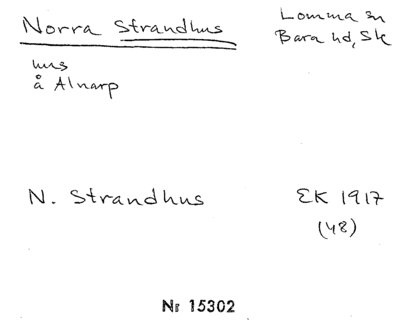 Norra Strandhus
Lomma sn
Bara hd, Sk
hus
å Alnarp
N. Strandhus
EK 1917
(48)
Nr 15302